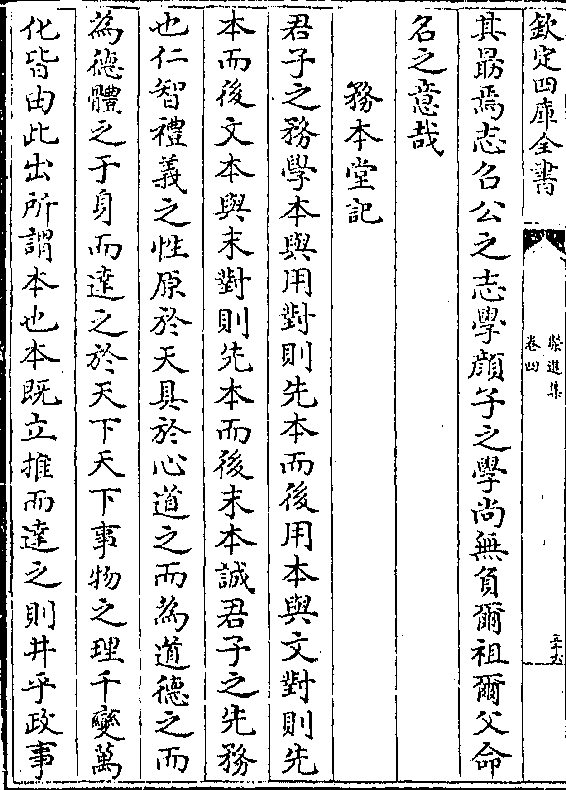 欽定四庫全書
卷四
其朂焉志召公之志學顔子之學尚無負爾祖爾父命
名之意哉
務本堂記
君子之務學本與用對則先本而後用本與文對則先
本而後文本與末對則先本而後末本誠君子之先務
也仁智禮義之性原於天具於心道之而為道德之而
為德體之于身而達之於天下天下事物之理千變萬
化皆由此出所謂本也本既立推而達之則井乎政事